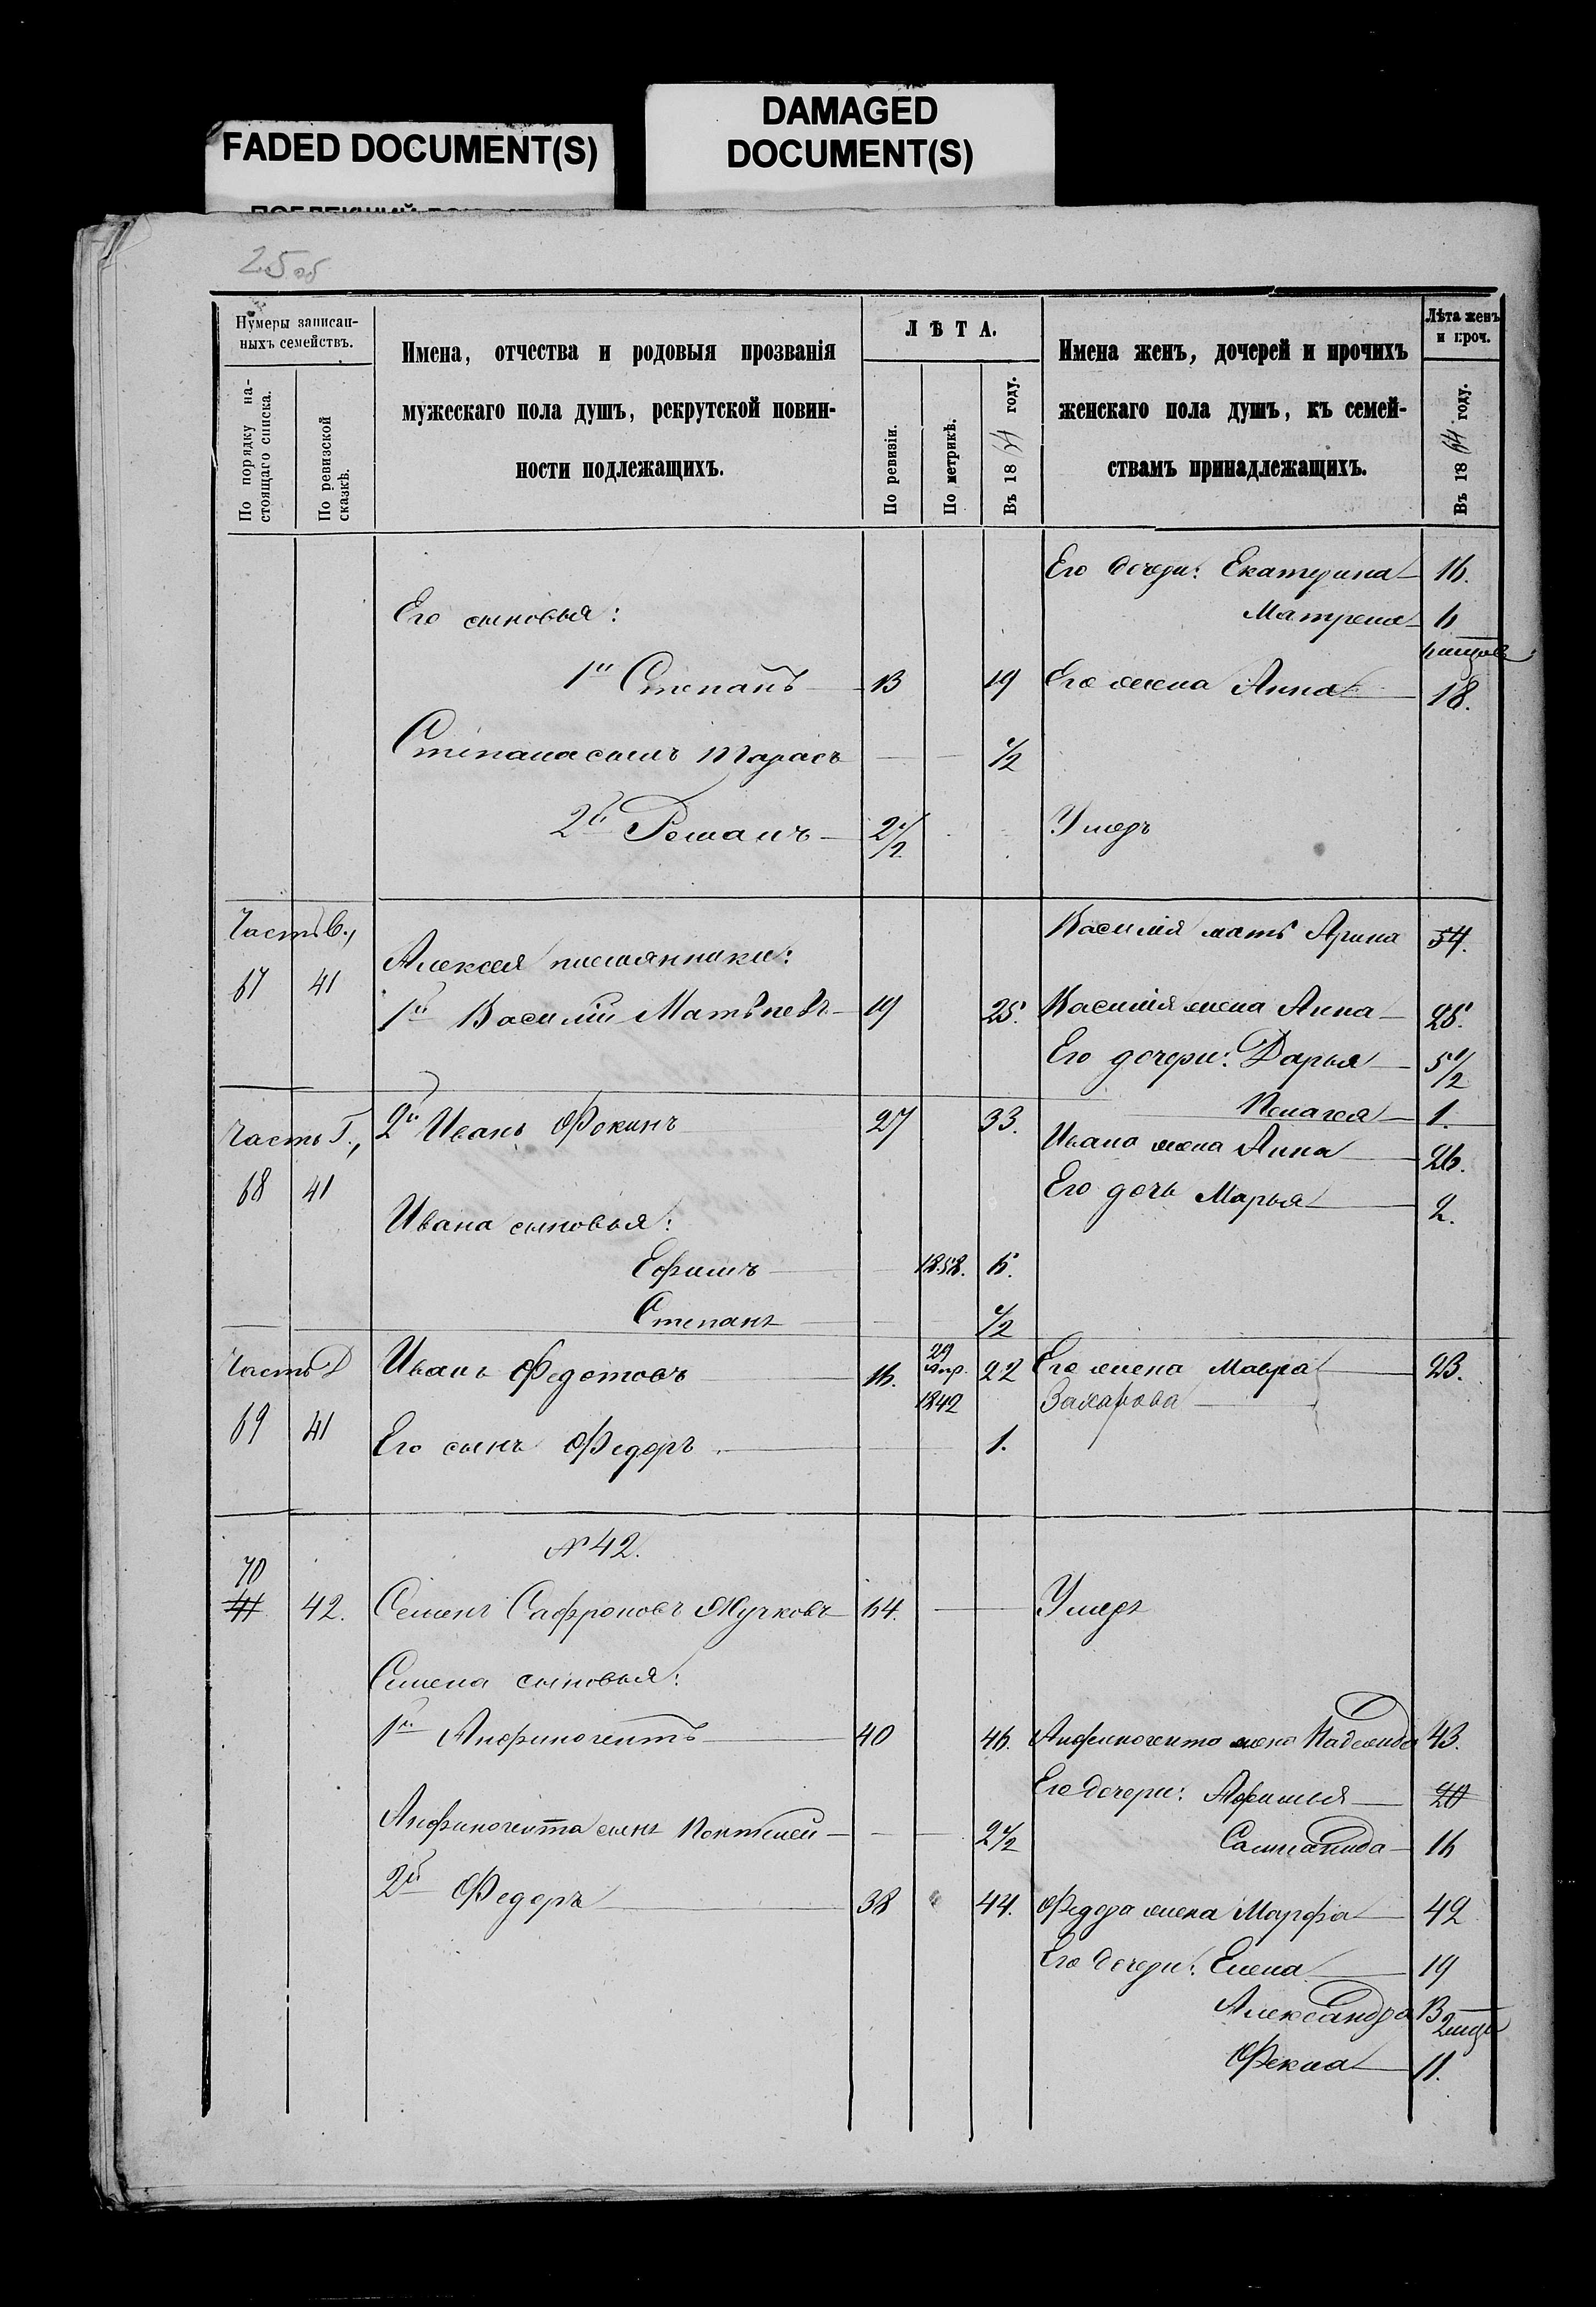 FADED DOCUMENT(S)
DAMAGED
DOCUMENT(S)
25об
Нумеры записан-
ныхъ семействъ.
По порядку на-
стоящаго списка.
По ревизской
сказкѣ.
Имена, отчества и родовыя прозванія
мужескаго пола душъ, рекрутской повин-
ности подлежащихъ.
ЛѢТА.
По ревизіи.
По метрикѣ.
Въ 1864 году.
Имена женъ, дочерей и прочихъ
женскаго пола душъ, къ семей-
ствамъ принадлежащихъ.
Лѣта женъ
и проч.
Въ 1864 году.
Его дочери: Екатерина 16.
Его сыновья:
Матрена 6
1й Степанъ 13 19 Его жена Анна 18.
Степана сынъ Тарасъ 1/2
2й Романъ 2 1/2 Умеръ
Часть В.,
Василія мать Арина 54.
67 41 Алексея племянники:
1й Василій Матвѣевъ 19 25. Василія жена Анна 25.
Его дочери: Дарья 5 1/2
Пелагея 1.
Часть Г., 2й Иванъ Фокинъ 27 33.
Ивана жена Анна 26.
68 41
Его дочь Марья 2.
Ивана сыновья:
Ефимъ 1858. 6.
Степанъ 1/2
Часть Д Иванъ Федотовъ 16. 29 Апр. 1842 22 Его жена Мавра 23.
Захарова
69 41 Его сынъ Федоръ 1.
№ 42.
70
41 42. Семенъ Сафроновъ Жучковъ 64. Умеръ
Семена сыновья:
1й Анфиногентъ 40 46. Анфиногента жена Надежда 43.
Его дочери: Афимья 20
Анфиногента сынъ Понтелей 2 1/2
Саломанида 16
2й Федоръ 38 44. Федора жена Марфа 42
Его дочери: Елена 19
Александра 13
Фекла 11.